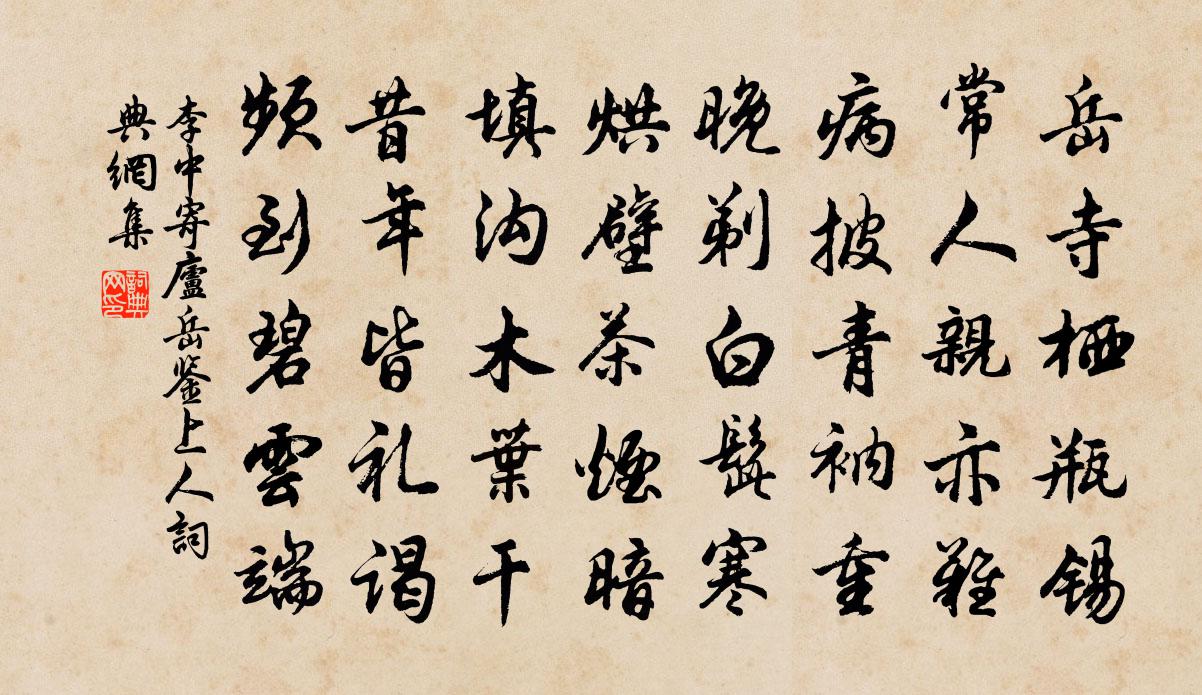 岳寺栖瓶锡
常人親亦難
病披青衲重
晚剃白髭寒
烘壁茶煙暗
填沟木葉干
昔年皆礼谒
频到碧雲端
李中寄廬岳鉴上人詞
典網集
詞典
网印